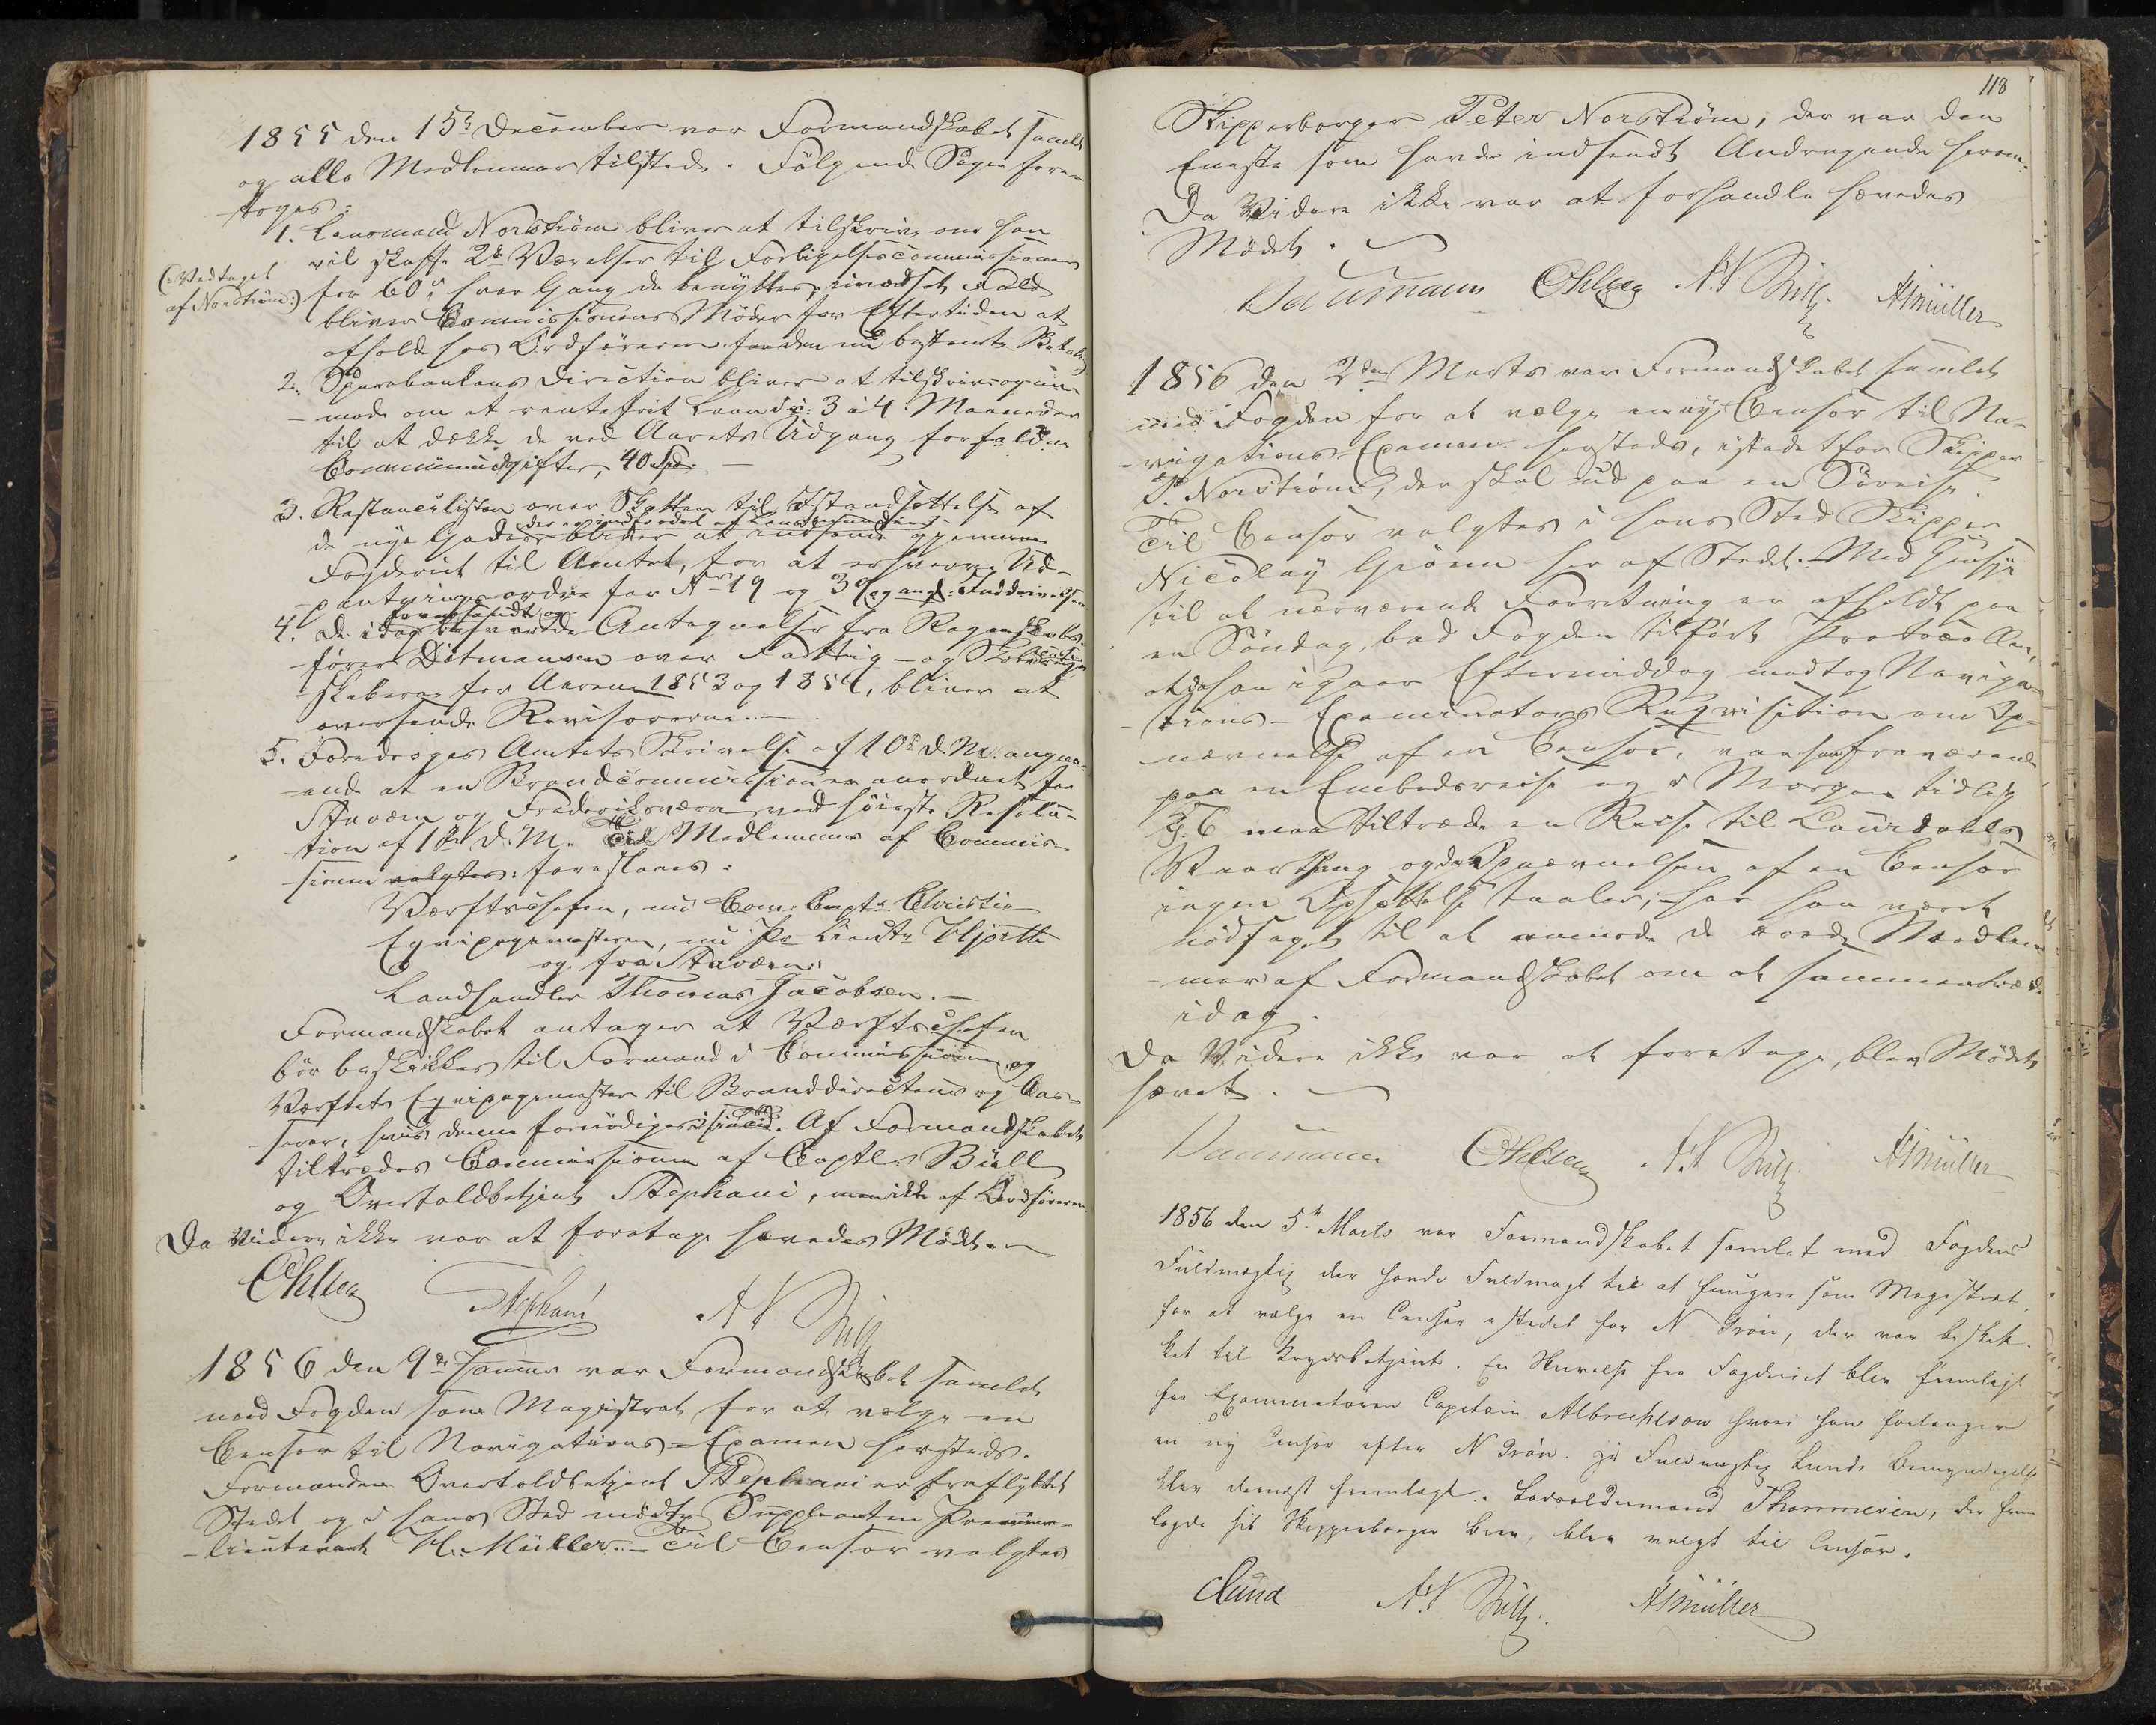 1855 den 15de December var Formandskabet samlet
og alle Medlemmer tilstede. Følgende Sager fore-
toges:
1. Lensmand Norstrøm bliver at tilskrive om han
vil skaffe 2de Værelser til Forligelsescommissionen
(:Vedtaget
af Norstrøm:)
for 60 s hver Gang de benyttes; i modsat Fald
bliver Commissionens Møder for Eftertiden at
afholde hos Ordføreren for den nu bestemte Betaling
2. Sparebankens Direction bliver at tilskrive og an-
mode om et rentefrit Laan i 3 à 4 Maaneder
til at dække de ved Aarets Udgang forfaldne
Communeudgifter, 40 Spd. —
3. Restancelisten over Skatten til Istandsættelse af
der er indfordret af Lensmanden
de nye Gader bliver at indsende gjennem
Fogderiet til Amtet, for at erhverve Ud-
pantningsordre for No 19 og 39 angd: Inddrivelsen
fremsendte og
4. De idag besvarede Antegnelser fra Regnskabs-
fører Ditmansen over Fattig- og Skoleregn-
skaberne for Aarene 1853 og 1854, bliver at
oversende Revisorerne. —
5. Foredroges Amtets Skrivelse af 10de d. M. angaa-
ende at en Brandcommission er anordnet for
Stavern og Frederiksværn ved høieste Resolu-
tion af 1ste d. M. Til Medlemmer af Commis-
sionen valgtes: foreslaaes:
Værftschefen, nu Com: Capt: Christie
Eqvipagemesteren, nu Pr Lieutn Hjorth
og fra Stavern:
Landhandler Thomas Jacobsen. —
Formandskabet antager at Værftschefen
bør beskikkes til Formand i Commissionen og
Værftets Eqvipagemester til Branddirecteur og Cas-
serer, hvis denne fornødiges i sin Tid. Af Formandskabet
tiltrædes Commissionen af Captl. Büll
og Overtoldbetjent Stephani, men ikke af Ordføreren
Da Videre ikke var at foretage hævedes Mødet. —
Ohlsen Stephani
1856 den 9de Januar var Formandskabet samlet
med Fogden som Magistrat for at vælge en
Censor til Navigations-Examen hersteds.
Formanden Overtoldbetjent Stephani er fraflyttet
Stedet og i hans Sted mødte Suppleanten Premier-
lieutenant H. Müller. — Til Censor valgtes
118
Skipperborger Peter Norstrøm, der var den
Eneste som havde indsendt Andragende herom.
Da Videre ikke var at forhandle hævedes
Mødet.
Daumann Ohlsen Müller
1856 den 2den Marts var Formandskabet samlet
med Fogden for at vælge en ny Censor til Na-
vigations-Examen hersteds, istedetfor Skipper
P. Norstrøm, der skal ud paa en Søreise.
Til Censor valgtes i hans Sted Skipper
Nicolay Grønn her af Stedet. — Med Hensyn
til at nærværende Forretning er afholdt paa
en Søndag, bad Fogden tilført Protocollen,
at da han igaar Eftermiddag modtog Naviga-
tions-Examinators Reqvisition om Op-
nævnelse af en Censor, var han fraværende
paa en Embedsreise og i Morgen tidlig
Kl. 6 maa tiltræde en Reise til Laurdals
Vaarthing og da Opnævnelsen af en Censor
ingen Opsættelse taaler, har han været
nødsaget til at anmode de ærede Medlem-
mer af Formandskabet om at sammentræde
idag.
Da Videre ikke var at foretage, blev Mødet
hævet.
Daumann Ohlsen Müller
1856 den 5te Marts var Formandskabet samlet med Fogdens
Fuldmægtig der havde Fuldmagt til at fungere som Magistrat
for at vælge en Censor istedet for N Grøn, der var beskik-
ket til Krydsbetjent. En Skrivelse fra Fogderiet blev fremlagt
fra Examinatoren Capitain Albrechtson hvori han forlanger
en ny Censor efter N Grøn. Fuldmægtig Lunds Bemyndigelse
blev dernæst fremlagt. Lodsoldermand Thommesen, der frem-
lagde sit Skipperborger Brev, blev valgt til Censor.
Lund Müller